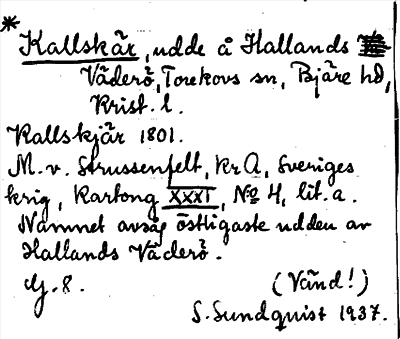 * Kallskär, udde å Hallands
Väderö, Torekovs sn, Bjäre hd,
Krist. l.
Kallskjär 1801.
M. v. Strussenfelt, KrA, Sveriges
krig, Kartong XXXI, No 4, lit. a.
Namnet avsåg östligaste udden av
Hallands Väderö.
(Vänd!)
S. Sundquist 1937.